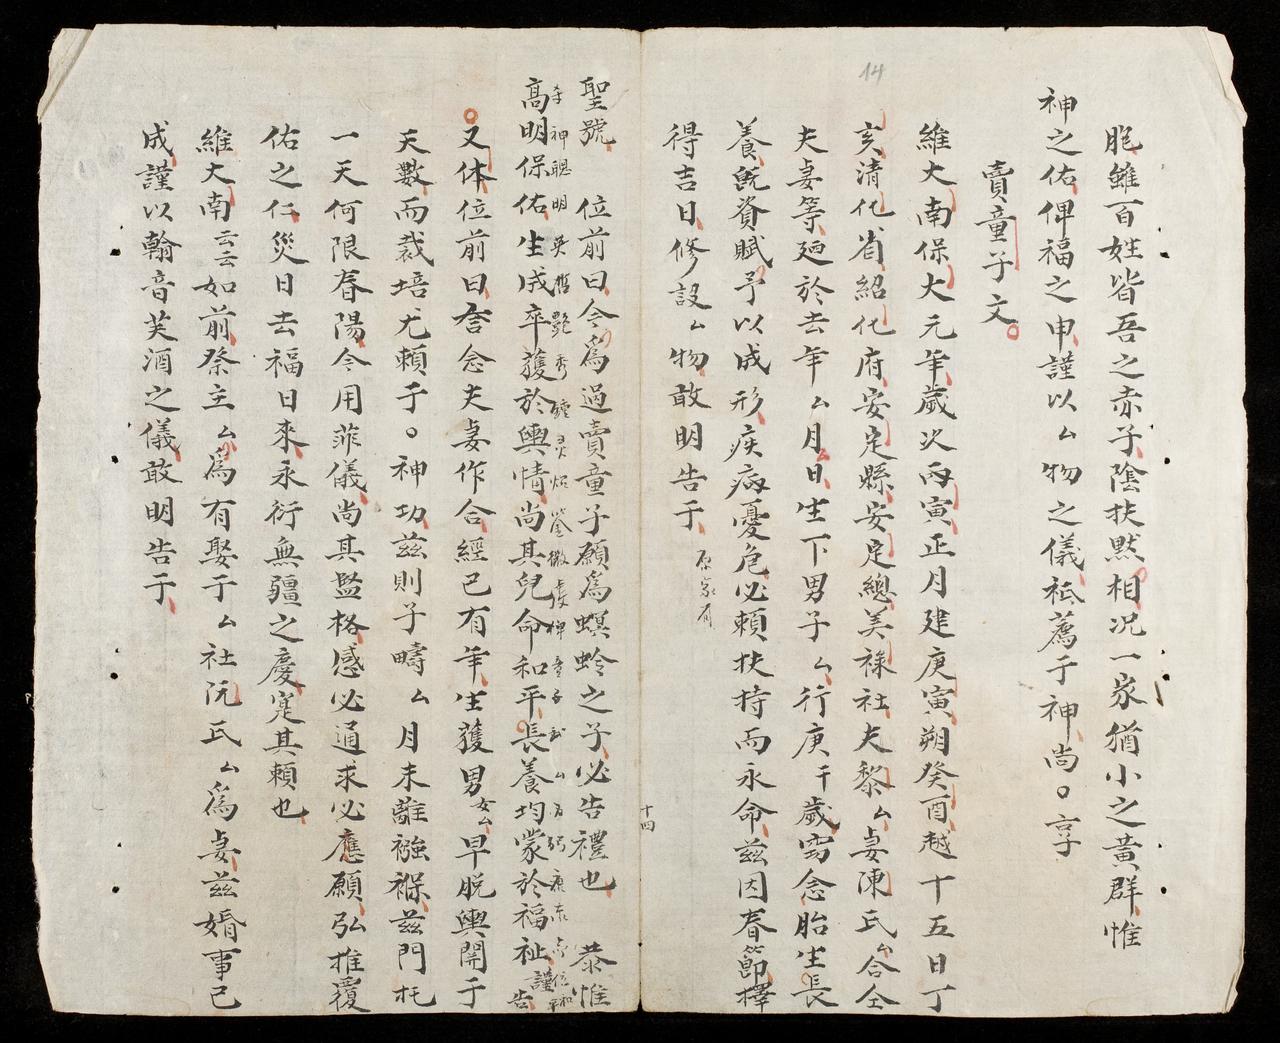 14
胞雖百姓皆吾之赤子陰扶黙相况一家猶小之黃群惟
神之佑俾福之申謹以厶物之儀祗薦于神尚○享
賣童子文
維大南保大元年歲次丙寅正月建庚寅朔癸酉越十五日丁
亥清化省紹化府安定縣安定總美祿社夫黎厶妻陳氏厶合全
夫妻等廼於去年厶月日生下男子厶行庚干歲窃念胎生長
養旣資賦予以成形疾病憂危必賴扶持而永命茲因春節擇
得吉日修設厶物敢明告于
十四
聖號　位前曰今爲過賣童子願爲螟蛉之子必告禮也　恭惟
神聰明
高明保佑生成卒獲於輿情尚其兒命和平長養均蒙於福祉謹告
又体位前曰窃念夫妻作合經已有年生獲男女厶早脫輿開于
天數而裁培尤賴于○神功茲則子疇厶月未離襁褓茲門托
一天何限春陽今用菲儀尚其監格感必通求必應願弘推覆
佑之仁災日去福日來永衍無疆之慶寔其賴也
維大南云云如前祭主厶爲有娶于厶社阮氏厶爲妻茲婚事已
成謹以翰音芙酒之儀敢明告于